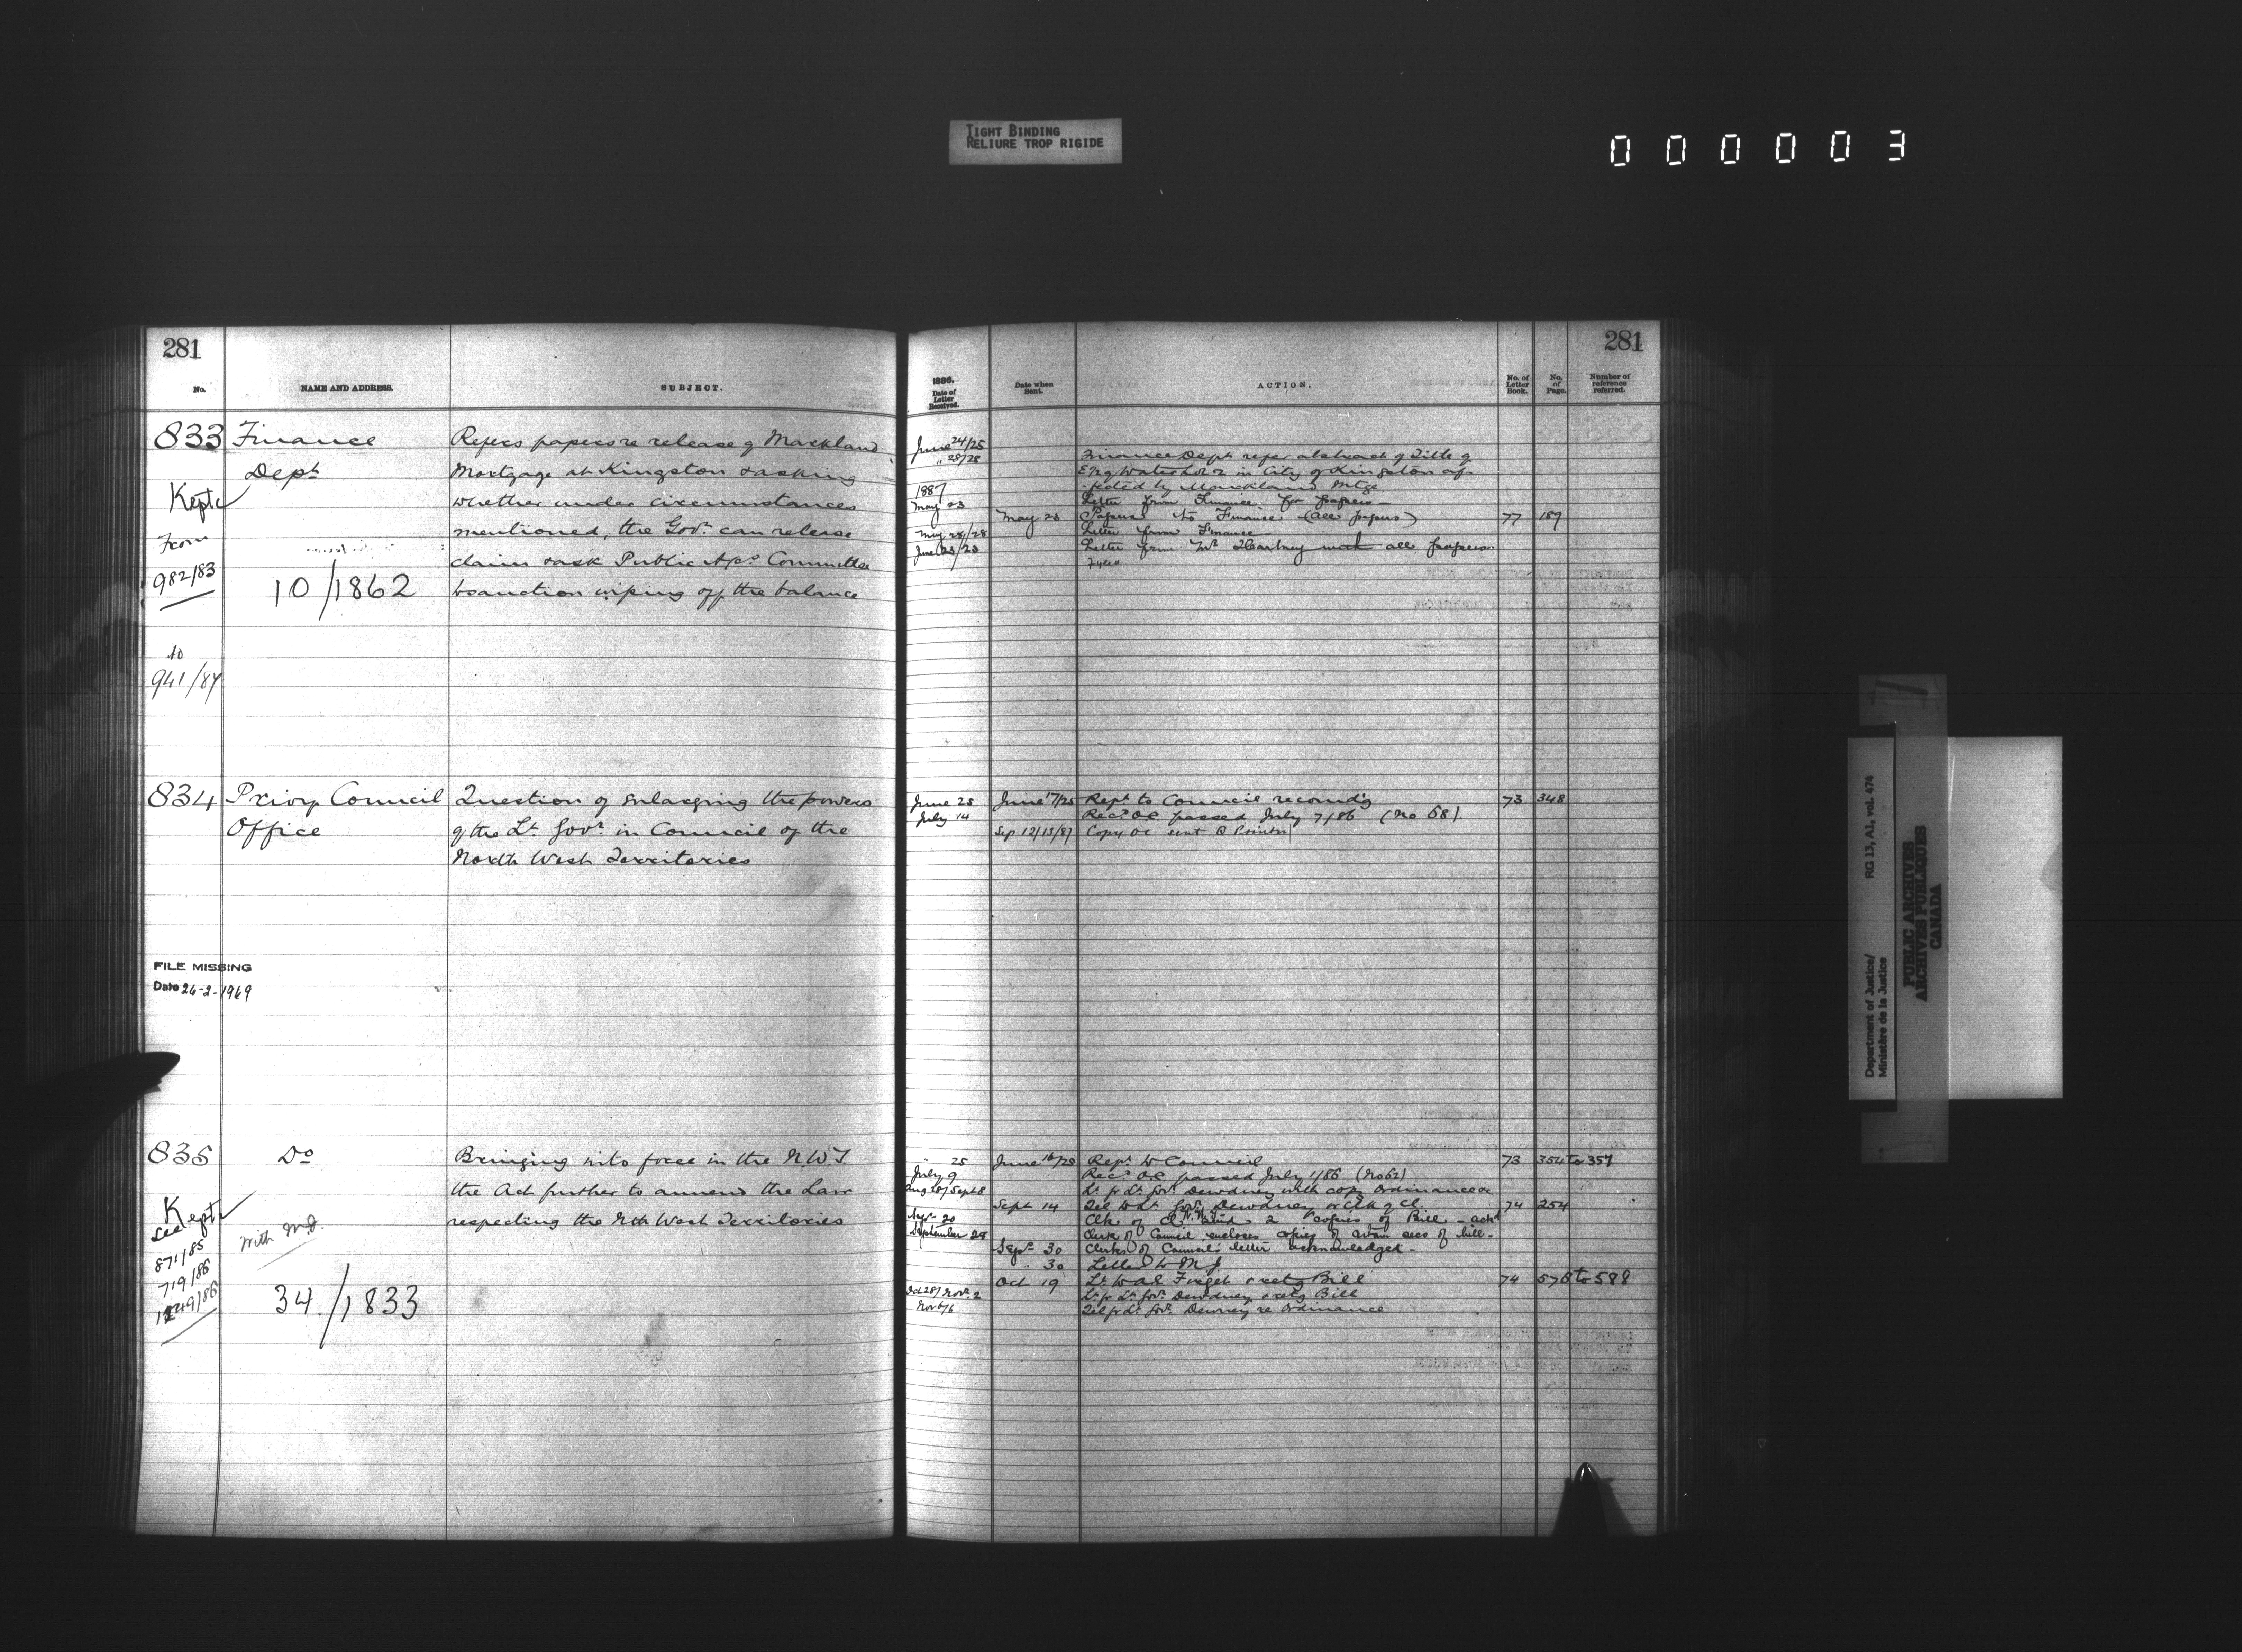 TIGHT BINDING
RELIURE TROP RIGIDE
000003
281
No.
NAME AND ADDRESS.
SUBJECT.
833
Finance
Dept
Kept
From
982/83
10/1862
to
941/87
Refers papers re release of Markland
Mortgage at Kingston & asking
whether under circumstances
mentioned, the Govt. can release
claim & ask Public A/cs Committee
to sanction wiping off the balance
834
Privy Council
Office
Question of enlarging the powers
of the Lt. Govr. in Council of the
North West Territories
FILE MISSING
Date 26-2-1969
835
Do
Kept
see
871/85
719/86
1249/86
With M.J.
34./1833
Bringing into force in the N.W.T.
the Act further to amend the Law
respecting the Nth West Territories
281
1886.
Date of
Letter
Received.
Date when
Sent.
ACTION.
No. of
Letter
Book.
No.
of
Page.
Number of
reference
referred.
June 24/25
" 28/28
Finance Dept refer abstract of Title of
Water Lot 2 in City of Kingston af-
-fected by Markland Mtge
1887
May 23
Letter from Finance for papers
May 23 Papers to Finance (all papers) 77 189
May 28/28 Letter from Finance
June 23/23 Letter from Mr all papers
June 25 June 17/25 Rept. to Council recomd'g 73 348
July 14 Recd. OC passed July 7/86 (No 58)
Sep 12/13/87 Copy OC sent Q Printer
" 25 June 16/25 Rept to Council 73 354 to 357
July 9 Recd. OC passed July 1/86 (No 62)
Aug 28/Sept 8 Lr. fr Lt. Govr. Dewdney with copy Ordinance
Sept 14 Tel to Lt. Govr. Dewdney or Clk of Cl. 74 254
Clk of Cl. N.W.T. 2 copies of Bill - ackd
September 28 Clerk of Council encloses copies of certain secs of bill -
Sept 30 Clerk of Council's letter acknowledged -
" 30 Letter to M J
Oct 19 Lr. to A E Forget retg Bill 74 578 to 588
Oct 28/Nov. 2 Lr. fr Lt. Govr. Dewdney retg Bill
Nov 6/6 Tel fr Lt. Govr. Dewdney re Ordinance
Department of Justice/
Ministère de la Justice
RG 13, A1, vol. 474
PUBLIC ARCHIVES
ARCHIVES PUBLIQUES
CANADA